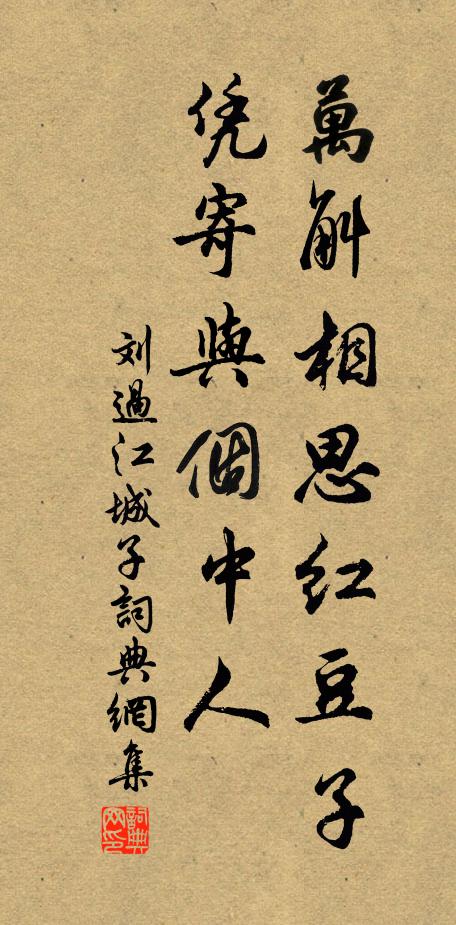 萬斛相思紅豆子
凭寄與個中人
刘過江城子詞典網集
詞典网印